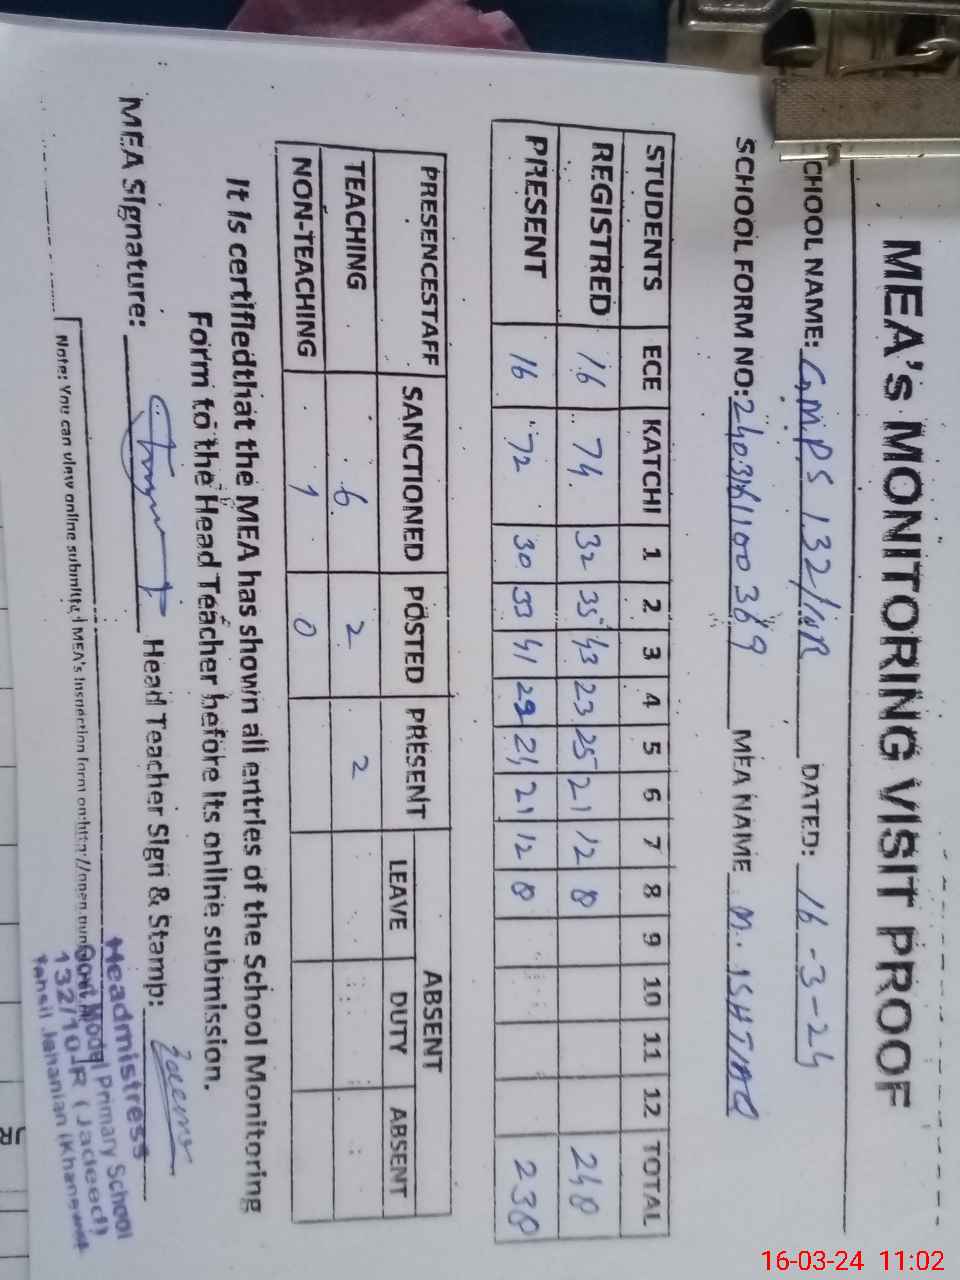 MEA's MONITORING VISIT PROOF
CHOOL NAME: GMPS 132/10R DATED: 16-3-24
SCHOOL FORM NO: MEA NAME M. ISHTIAQ
STUDENTS ECE KATCHI 1 2 3 4 5 6 7 8 9 10 11 12 TOTAL
REGISTRED 16 74 32 35 43 23 25 21 12 8 248
PRESENT 16 72 30 33 41 21 21 12 8 238
PRESENCESTAFF SANCTIONED POSTED PRESENT ABSENT
LEAVE DUTY ABSENT
TEACHING 6 2 2
NON-TEACHING 1 0
It is certifiedthat the MEA has shown all entries of the School Monitoring
Form to the Head Teacher before its online submission.
MEA Signature: Head Teacher Sign & Stamp:
Headmistress
Govt. Model Primary School
132/10-R (Jadeed)
Tehsil Jahanian (Khanewal
Note: You can view online submitted MEA's Inspection form on:http://open.pun
16-03-24 11:02